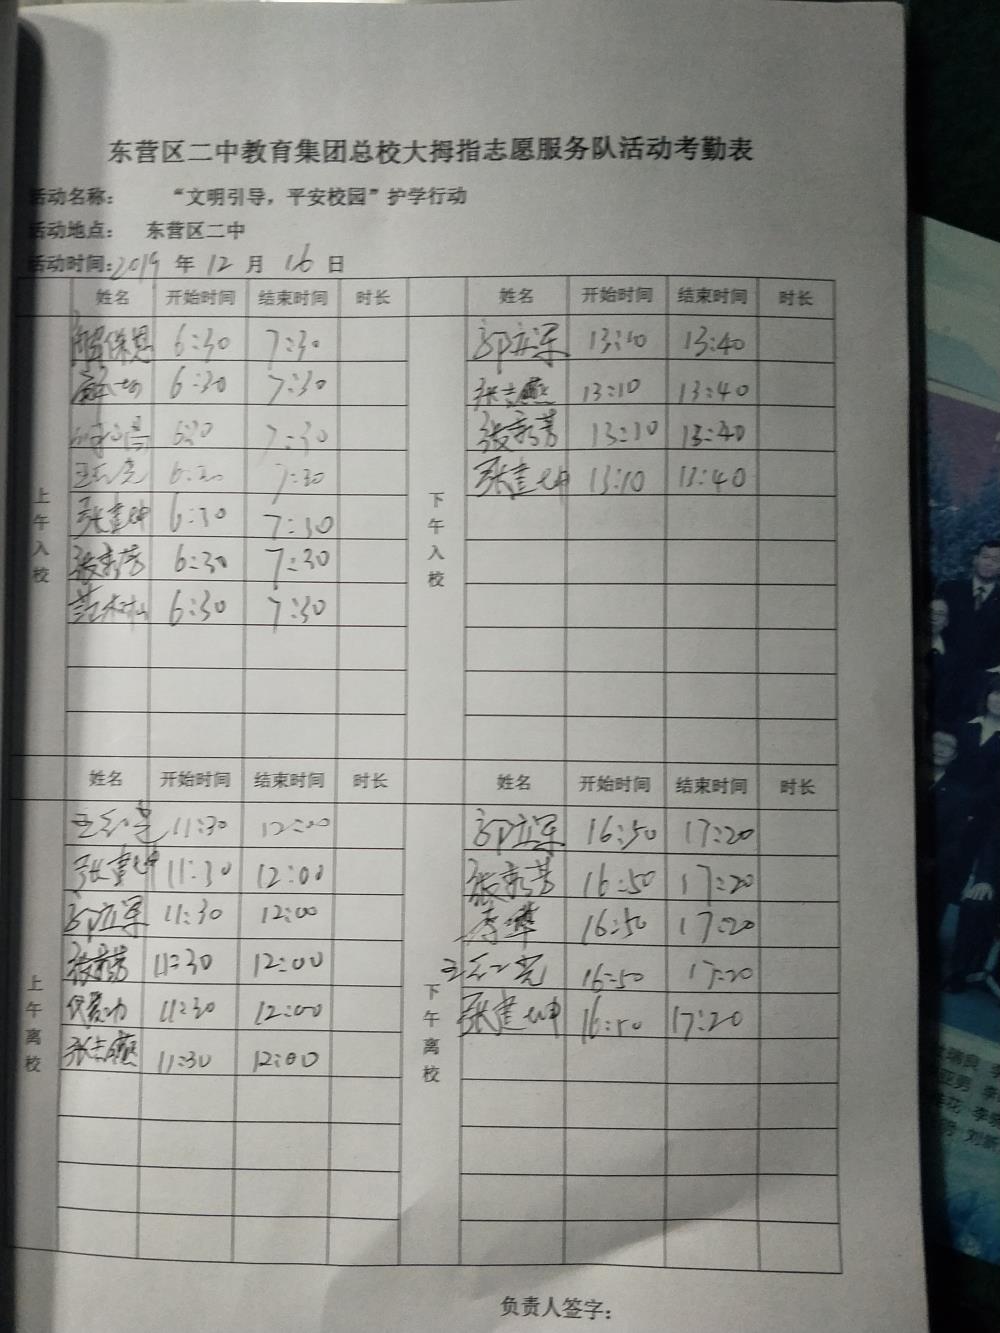 东营区二中教育集团总校大拇指志愿服务队活动考勤表
活动名称： “文明引导，平安校园”护学行动
活动地点： 东营区二中
活动时间：2019 年 12 月 16 日
姓名 开始时间 结束时间 时长 姓名 开始时间 结束时间 时长
上午入校
6:30 7:30
6:30 7:30
6:30 7:30
6:30 7:30
张建坤 6:30 7:30
张新芳 6:30 7:30
6:30 7:30
下午入校
邱立军 13:10 13:40
张志燕 13:10 13:40
张新芳 13:10 13:40
张建坤 13:10 13:40
姓名 开始时间 结束时间 时长 姓名 开始时间 结束时间 时长
上午离校
11:30 12:00
张建坤 11:30 12:00
邱立军 11:30 12:00
张新芳 11:30 12:00
11:30 12:00
张志燕 11:30 12:00
下午离校
邱立军 16:50 17:20
张新芳 16:50 17:20
16:50 17:20
16:50 17:20
张建坤 16:50 17:20
负责人签字：